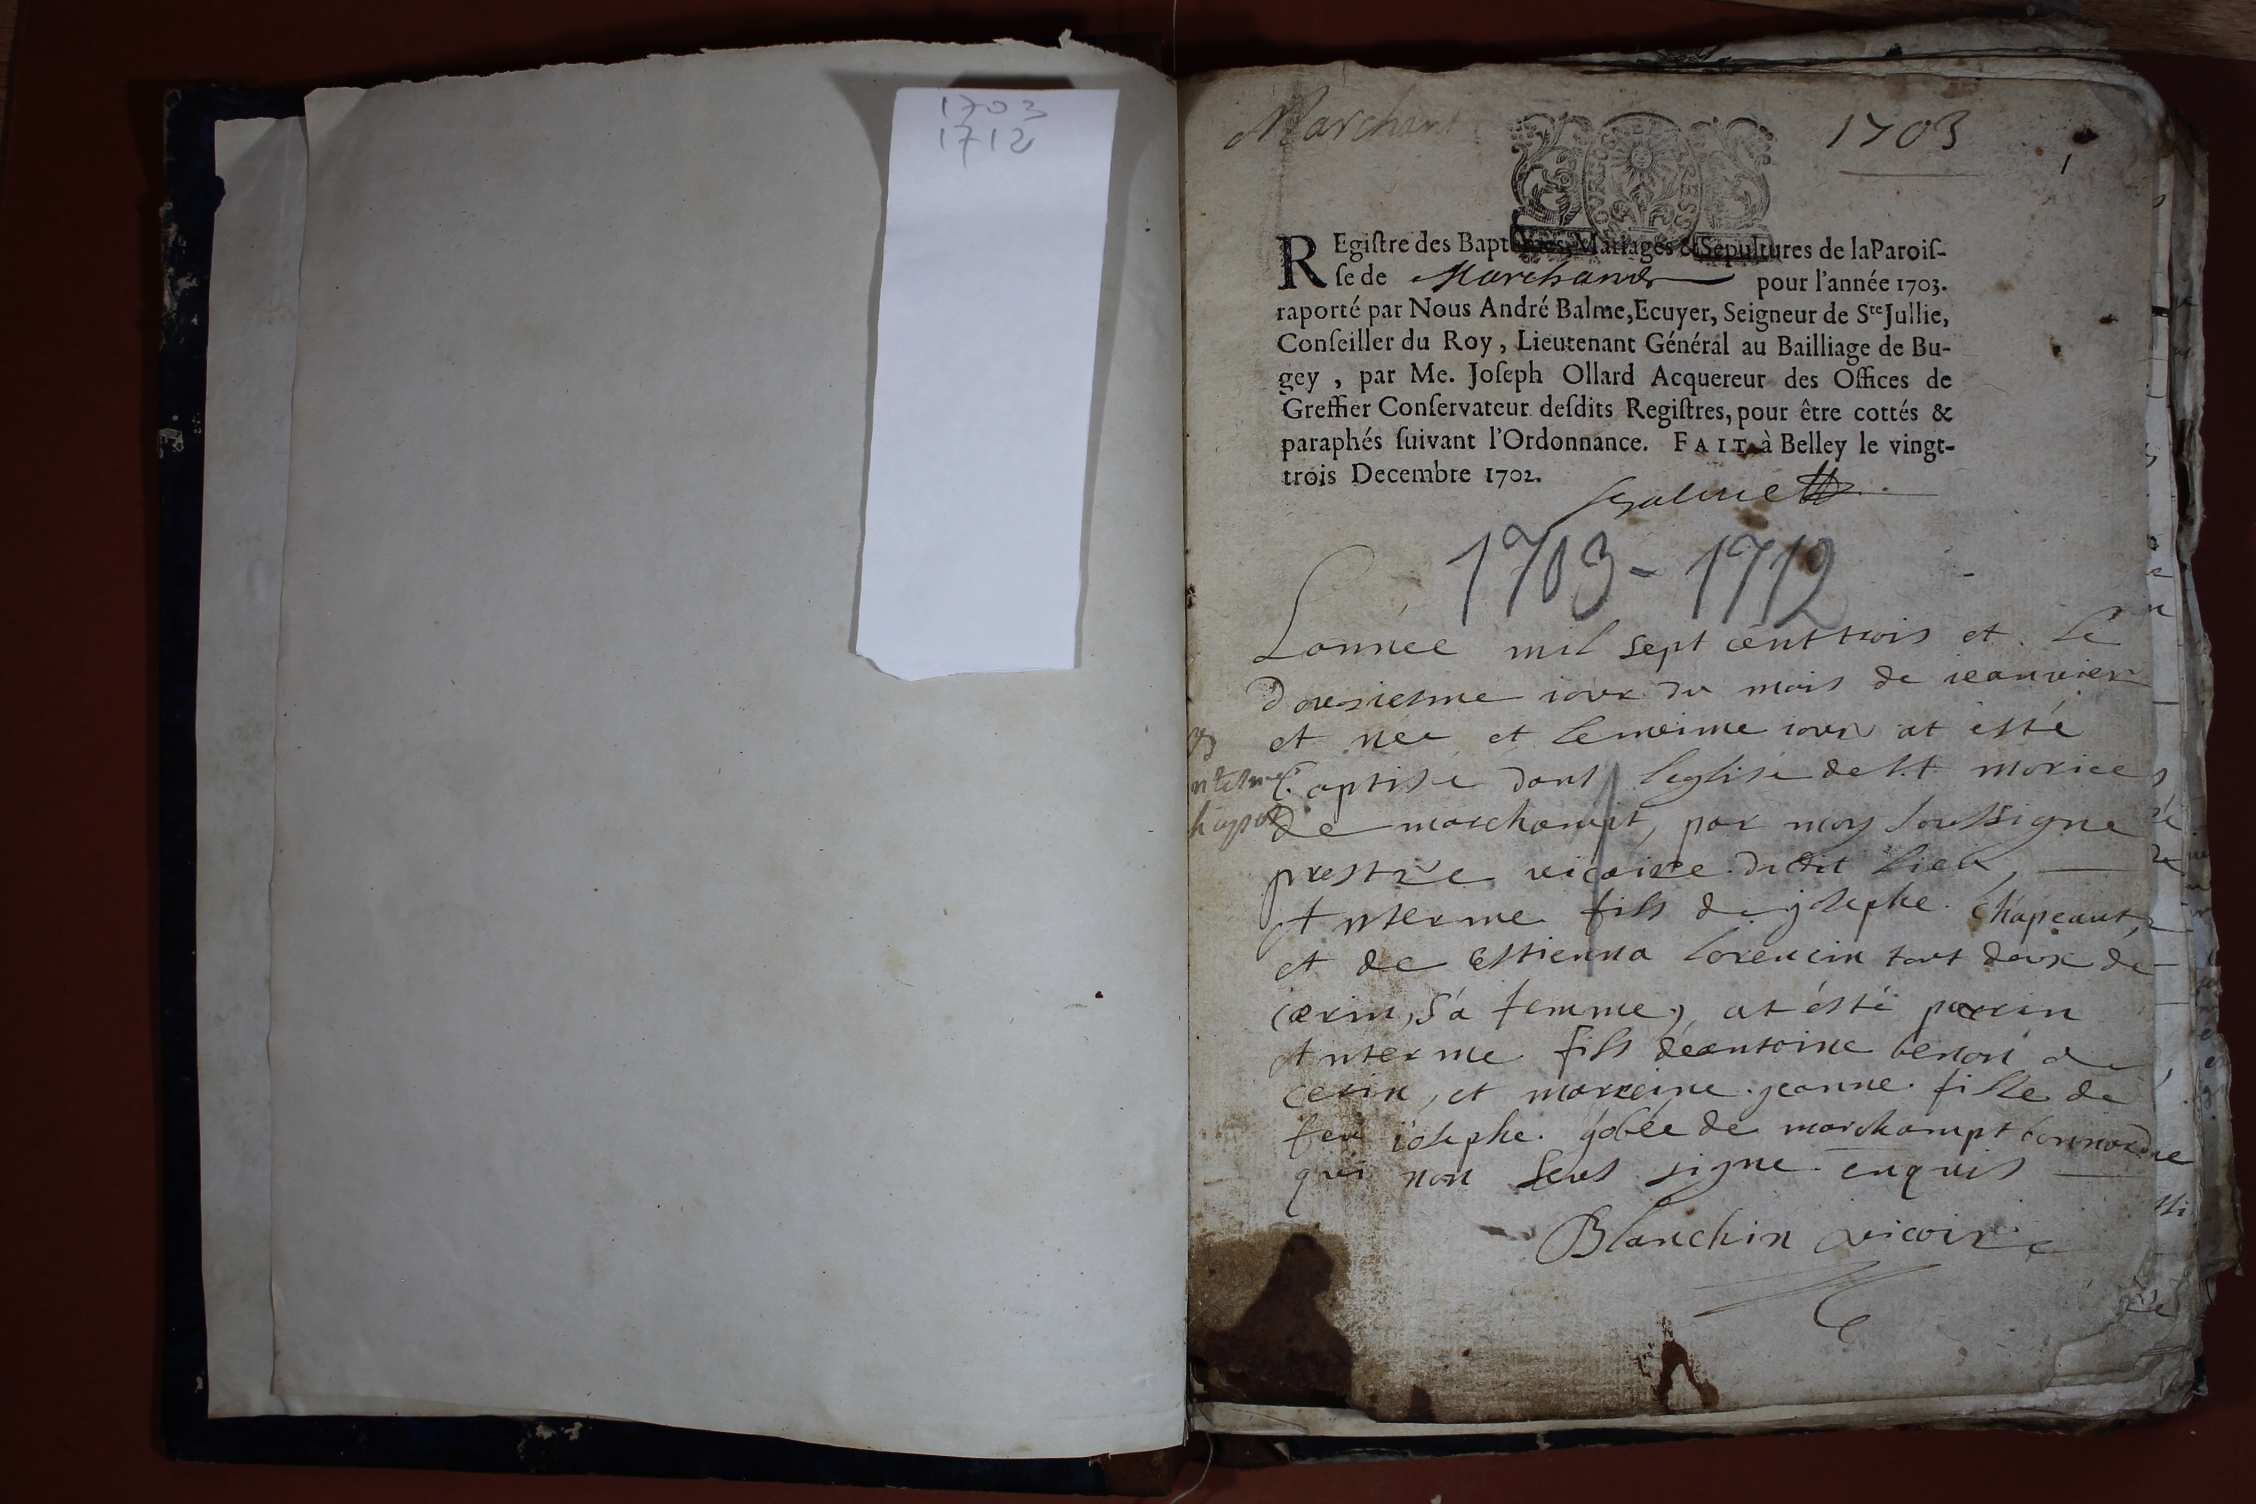 1703
1712
Marchant
1703
1
REgiſtre des Baptêmes, Mariages & Sepultures de la Paroiſ-
ſe de Marchand pour l'année 1703.
raporté par Nous André Balme, Ecuyer, Seigneur de Ste Jullie,
Conſeiller du Roy, Lieutenant Général au Bailliage de Bu-
gey, par Me. Joſeph Ollard Acquereur des Offices de
Greffier Conſervateur deſdits Regiſtres, pour être cottés &
paraphés ſuivant l'Ordonnance. FAIT à Belley le vingt-
trois Decembre 1702.
1703-1712
Lannee mil sept centtrois et le
dousiesme iour du mois de ieanvier
et née et lemeime iour at esté
baptisé dant leglise de St morice
de marchampt, par moy soussigne
prestre vicaire dudit lieu,
Anterme fils de josephe Chapeaut,
et de Estienna lorencin tout doux de
cerin, sa femme, at ésté parrin
Anterme fils deantoine benon de
cerin, et marreine jeanne fille de
feu iosephe gobée de marchampt
qui non seus signe enquis
Blanchin vicoire